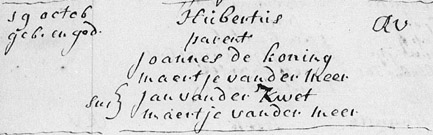 19 octob Hubertus
geb. en god. parent
Joannes de Koning
maertje vander meer
sus Jan vander Kwet
maertje vander meer